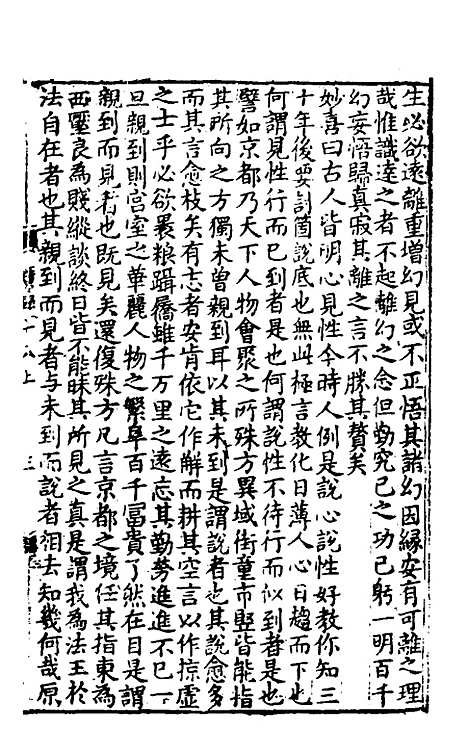 生必欲遠離重增幻見或不正悟其諸幻因緣安有可離之理
哉惟識達之者不起離幻之念但勤究己之功己躬一明百千
幻妄悟歸真寂其離之言不勝其贅矣
妙喜曰古人皆明心見性今時人例是說心說性好教你知三
十年後要討箇說底也無此極言教化日薄人心日趨而下也
何謂見性行而已到者是也何謂說性不待行而似到者是也
譬如京都乃天下人物會聚之所殊方異域街童市竪皆能指
其所向之方獨未曾親到耳以其未到是謂說者也其說愈多
而其言愈枝矣有志者安肯依它作解而耕其空言以作掠虛
之士乎必欲褁粮躡屩雖千万里之遠忘其勤勞進進不已一
旦親到則宮室之華麗人物之繁阜百千冨貴了然在目是謂
親到而見者也既見矣還復殊方凡言京都之境任其指東為
西壓良為賤縱談終日皆不能昧其所見之真是謂我為法王於
法自在者也其親到而見者与未到而說者相去知幾何哉原